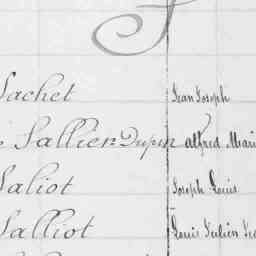 S
Sachet Jean Joseph
Sallier Dupin Alfred Mari
Saliot Joseph Louis
Salliot Louis Julien